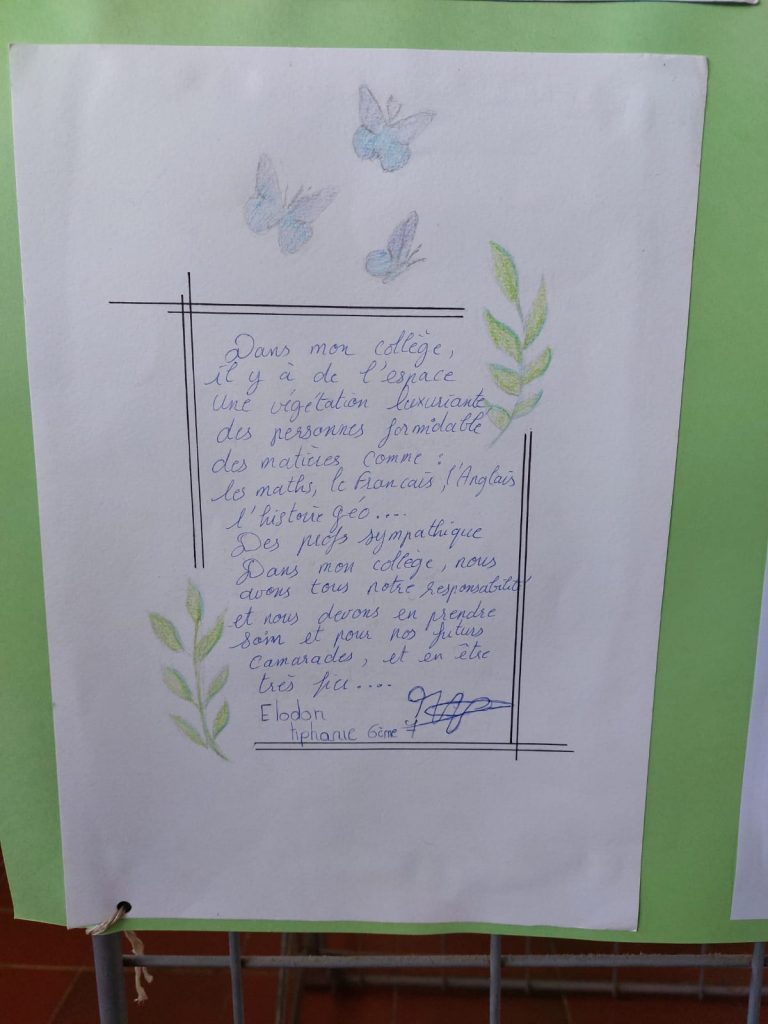 Dans mon collège,
il y à de l'espace
Une végétation luxuriante
des personnes formidable
des matières comme :
les maths, le Francais, l'Anglais
l'histoire géo....
Des profs sympathique
Dans mon collège, nous
avons tous notre responsabilité
et nous devons en prendre
soin et pour nos futurs
camarades, et en être
très fier....
Elodon
tiphanie 6ème 7